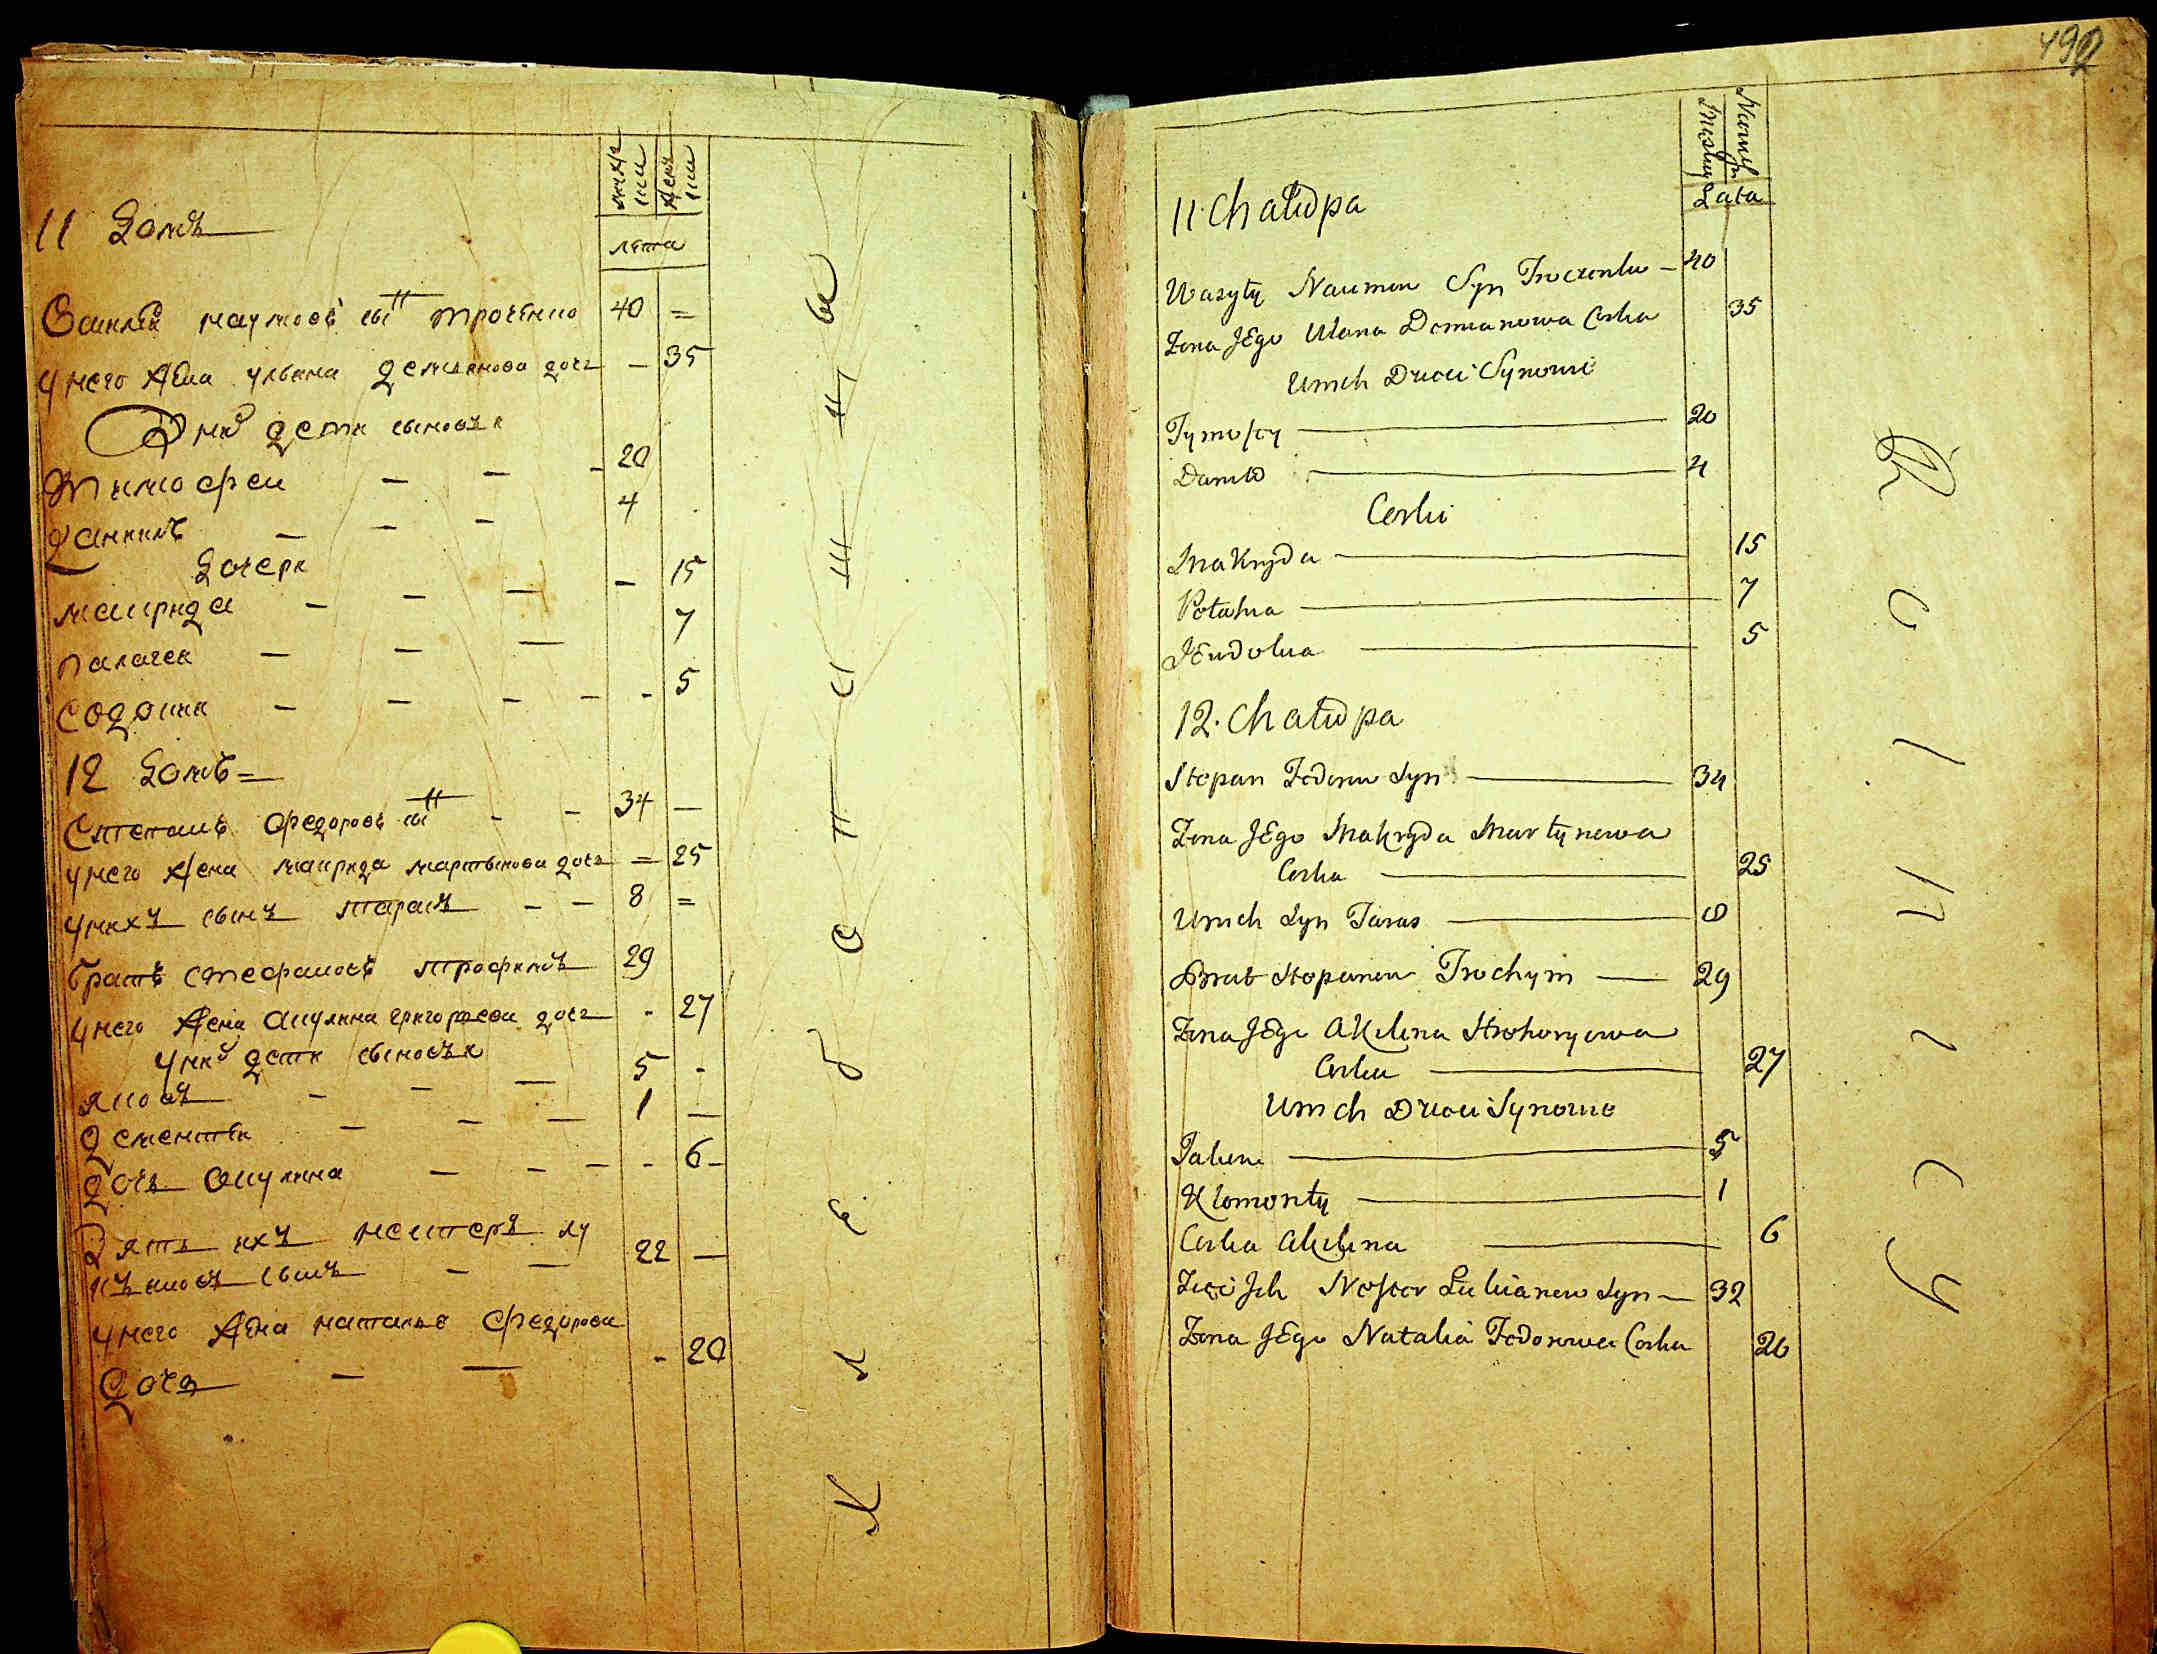 мужес
кии
женс
кии
лета
11 Домъ
Василеи наумовъ сынъ троченко 40 =
у него жена ульяна демьянова дочь – 35
У них дети сыновья
Тимофеи – – – 20
Даниилъ – – – 4
Дочери
макрида – – – – 15
палагея – – – 7
Евдокия – – – – - 5
12 Домъ =
Степанъ Федоровъ сынъ – – 34 —
у него жена макрида мартынова дочь = 25
у нихъ сынъ тарасъ – – 8 =
братъ стефановъ трофимъ 29
у него жена акулина григорьева дочь - 27
у них дети сыновья
яковъ – – — 5 -
дементеи – – — 1 —
дочь акулина – – – - 6 –
Зять ихъ нестеръ лу
кьяновъ сынъ – — 22 —
у него жена наталья Федорова
Дочь – — - 20
К л е б о п а ш ц ы
492
Męskiey
Niewieści
Lata
11. Chałupa
Wasyły Naumow Syn Troczenko – 40
Żona Jego Ulana Demianowa Corka 35
U nich Dzieci Synowie
Tymofiy — 20
Daniło — 4
Corki
Makryda — 15
Połahia — 7
Jewdokia — 5
12. Chałupa
Stepan Fedorow Syn — 34
Żona Jego Makryda Martynowa
Corka — 25
U nich Syn Taras — 8
Brat Stepanow Trochym — 29
Żona Jego Akilina Hrehoryowa
Corka — 27
U nich Dzieci Synowie
Jakiem — 5
Klementy — 1
Corka Akilina — 6
Zięć Jch Nestor Lukianow Syn — 32
Żona Jego Natalia Fedorowa Corka 20
R o l n i c y